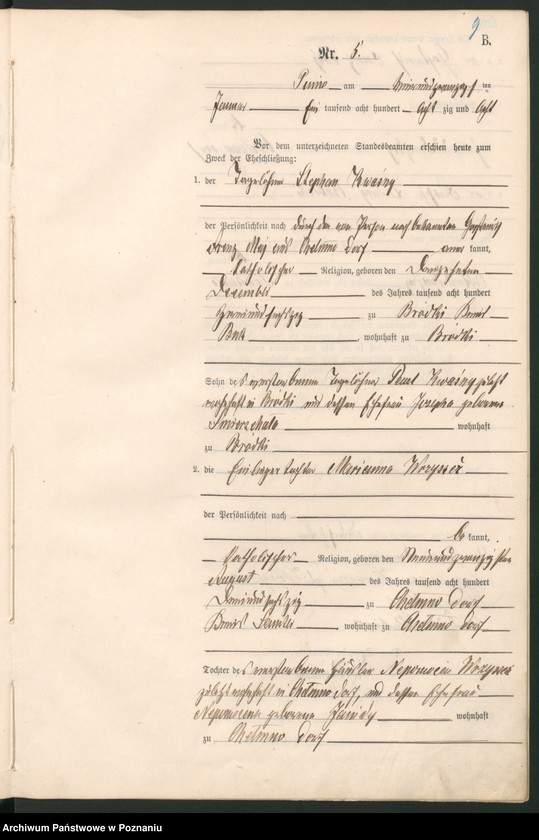 9
B.
Nr. 5.
am neunundzwanzigsten
Januar ein tausend acht hundert acht zig und acht
Vor dem unterzeichneten Standesbeamten erschien heute zum
Zweck der Eheschließung:
1. der Tagelöhner Stephan Kwaśny
der Persönlichkeit nach durch den von Person nach bekannten
Franz Maj aus Chełmno Dorf aner kannt,
katholischer Religion, geboren den
December des Jahres tausend acht hundert
zu Brodki Kreis
Buk, wohnhaft zu Brodki
Sohn des verstorbenen Tagelöhner Paul Kwaśny zuletzt
wohnhaft in Brodki und dessen Ehefrau Josepha geborene
wohnhaft
zu Brodki
2. die Einliegertochter Marianna
der Persönlichkeit nach
be kannt,
katholischer Religion, geboren den neunundzwanzigsten
August des Jahres tausend acht hundert
zu Chełmno Dorf
Kreis Samter, wohnhaft zu Chełmno Dorf
Tochter des verstorbenen Häusler
zuletzt wohnhaft in Chełmno Dorf, und dessen Ehefrau
Nepomocena geborene wohnhaft
zu Chełmno Dorf
Archiwum Państwowe w Poznaniu